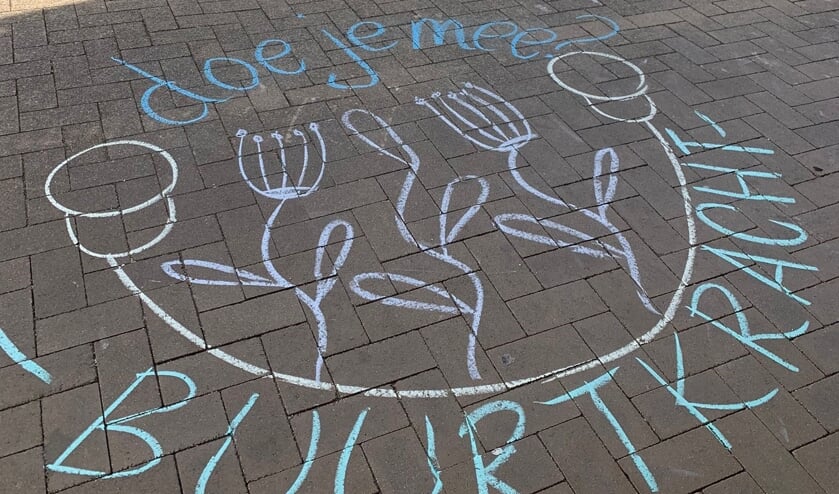 doe je mee?
BUURTKRACHT